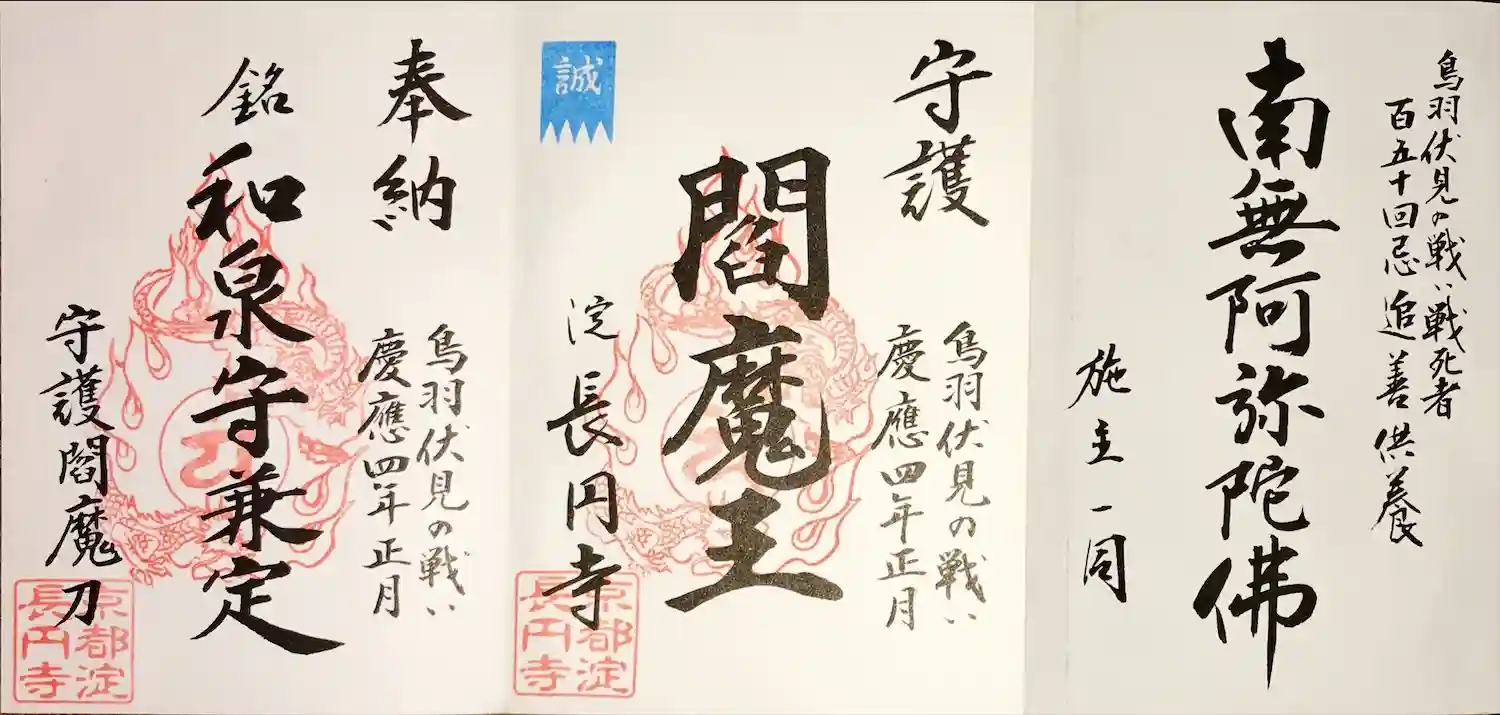 鳥羽伏見の戦い戦死者
百五十回忌 追善供養
南無阿弥陀佛
施主一同
守護
鳥羽伏見の戦い
慶應四年正月
閻魔王
淀 長円寺
誠
京都淀
長円寺
奉納
鳥羽伏見の戦い
慶應四年正月
銘 和泉守兼定
守護閻魔刀
京都淀
長円寺